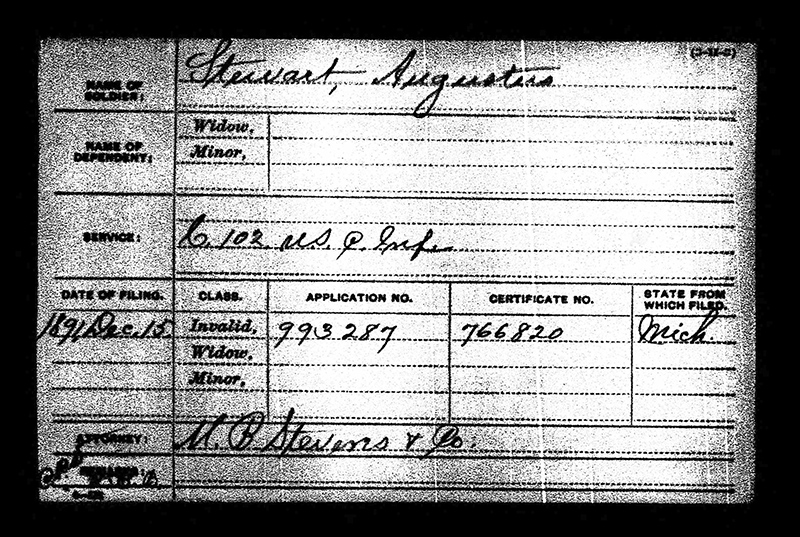 NAME OF SOLDIER: Stewart, Augustus
NAME OF DEPENDENT: Widow,
Minor,
SERVICE: C. 102 U.S.C. Inf.
DATE OF FILING. CLASS. APPLICATION NO. CERTIFICATE NO. STATE FROM WHICH FILED.
1891 Dec. 15 Invalid, 993287 766820 Mich.
Widow,
Minor,
ATTORNEY: M. B. Stevens & Co.
REMARKS: